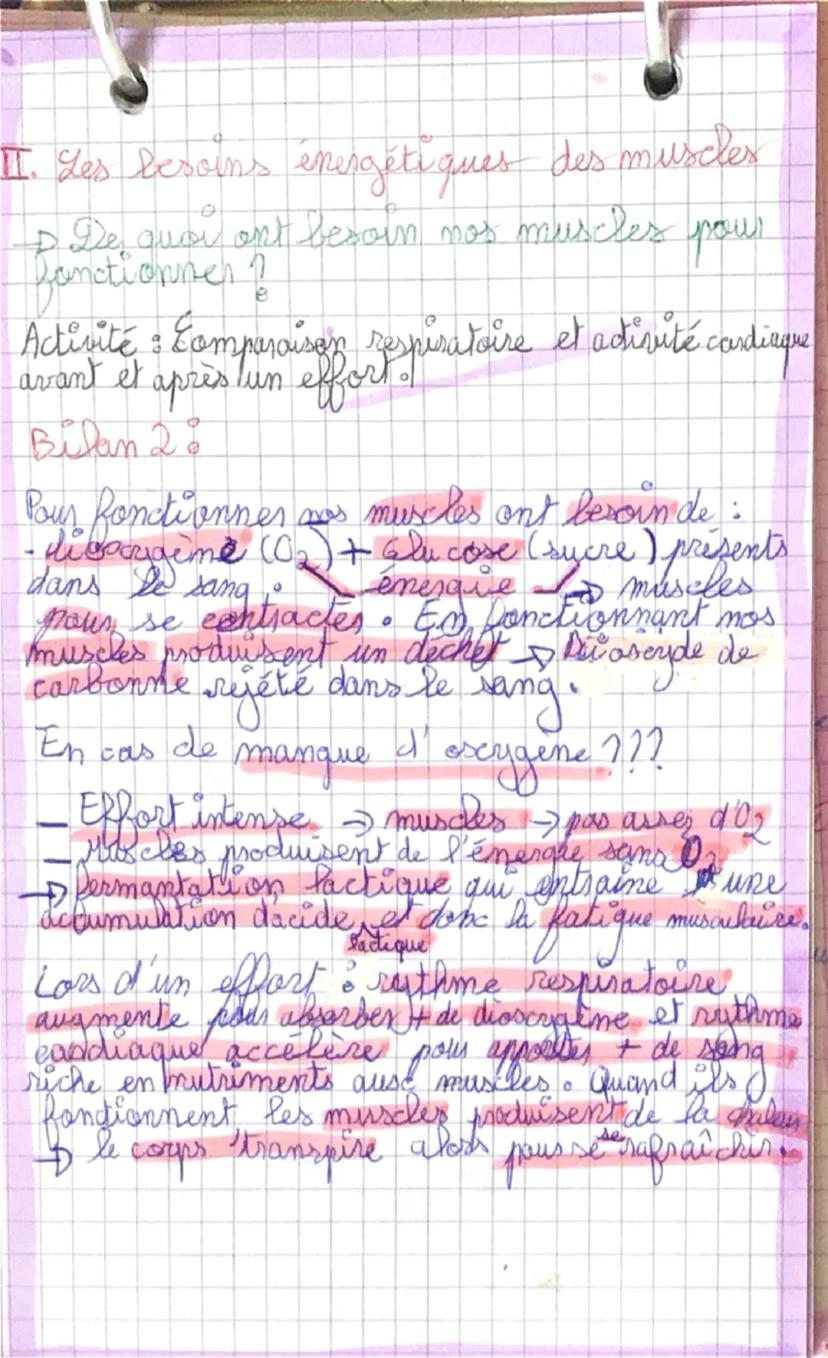 II. Les besoins énergétiques des muscles
→ De quoi ont besoin nos muscles pour
fonctionner ?
Activité : Comparaison respiratoire et activité cardiaque
avant et après un effort.
Bilan 2 :
Pour fonctionner nos muscles ont besoin de :
- dioxygène (O2) + Glucose (sucre) présents
dans le sang. énergie → muscles
pour se contracter. En fonctionnant nos
muscles produisent un déchet → Dioxyde de
carbonne rejété dans le sang.
En cas de manque d'oxygène ???
— Effort intense → muscles → pas assez d'O2
— Muscles produisent de l'énergie sans O2
→ fermantation lactique qui entraîne une
accumulation dacide lactique et donc la fatigue musculaire.
Lors d'un effort : rythme respiratoire
augmente pour absorber + de dioxygène et rythme
cardiaque accélère pour apporter + de sang
riche en nutriments aux muscles. Quand ils
fonctionnent les muscles produisent de la chaleur
→ le corps transpire alors pour se rafraîchir.